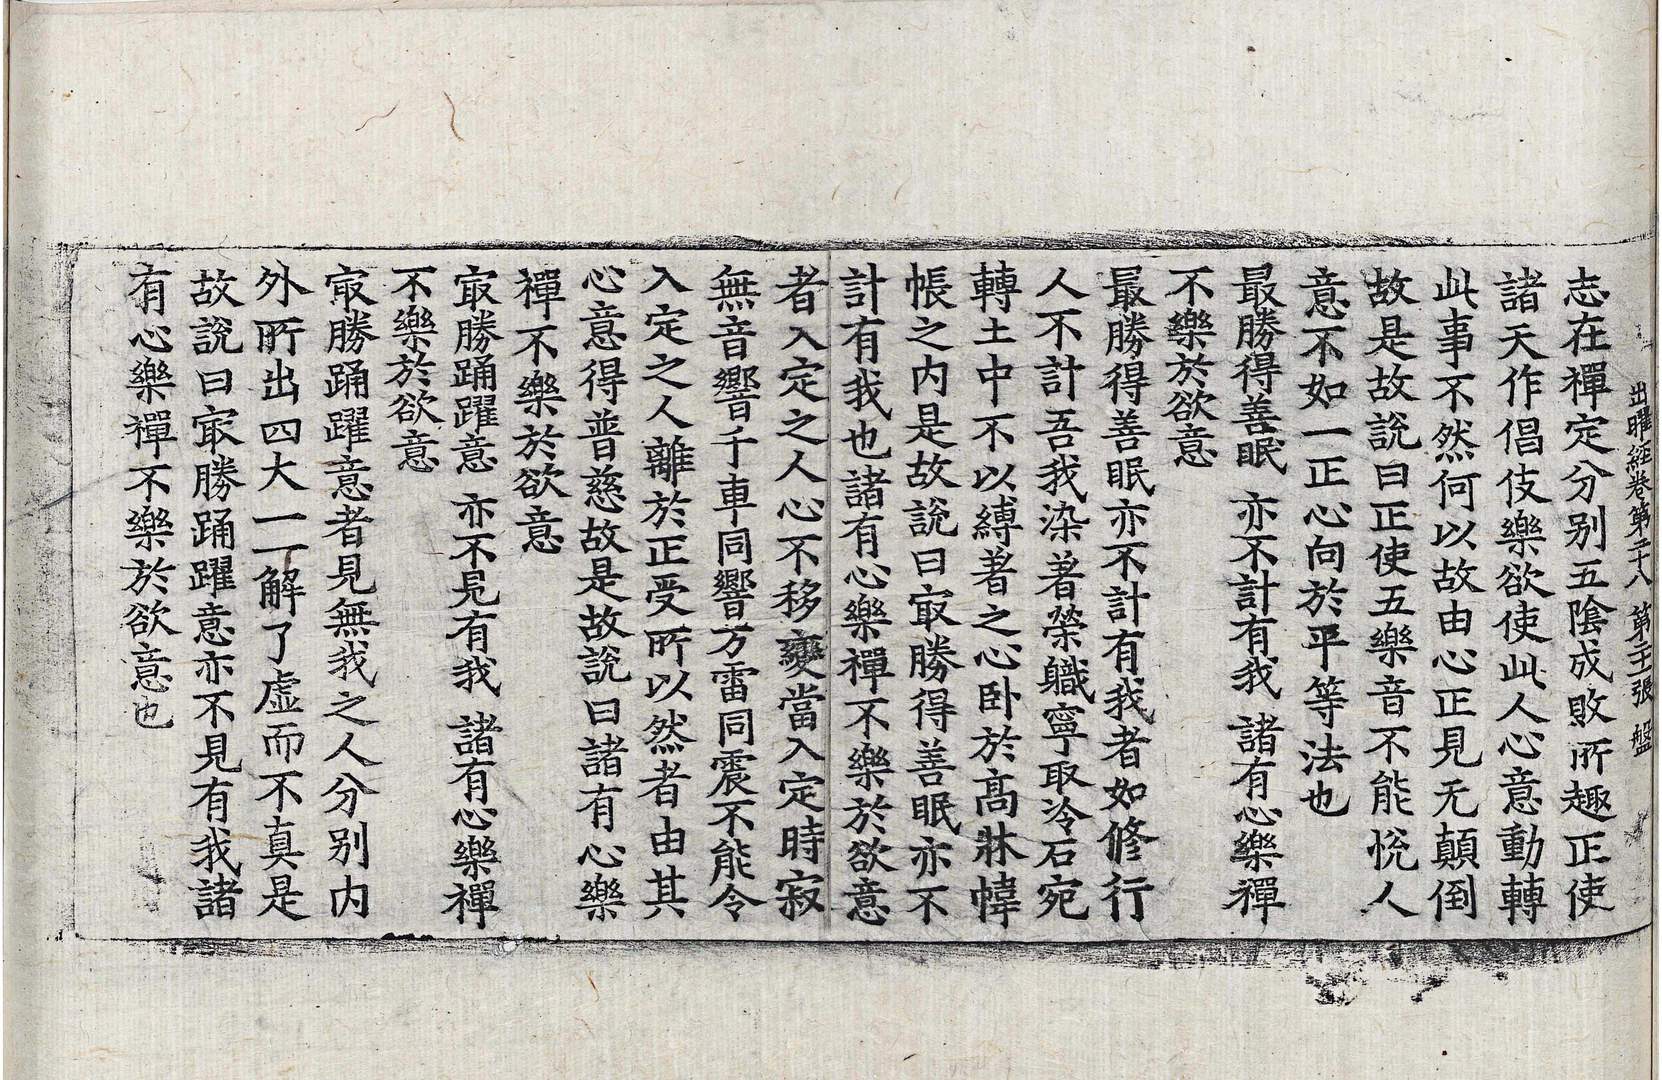 出曜経卷第二十八 第十二張 盤
志在禪定分别五陰成敗所趣正使
諸天作倡伎樂欲使此人心意動轉
此事不然何以故由心正見无顛倒
故是故說曰正使五樂音不能悅人
意不如一正心向於平等法也
最勝得善眠 亦不計有我 諸有心樂禪
不樂於欲意
最勝得善眠亦不計有我者如修行
人不計吾我染著榮職寧取冷石宛
轉土中不以縛著之心卧於髙牀幃
帳之内是故說曰㝡勝得善眠亦不
計有我也諸有心樂禪不樂於欲意
者入定之人心不移變當入定時寂
無音響千車同響万雷同震不能令
入定之人離於正受所以然者由其
心意得普慈故是故說曰諸有心樂
禪不樂於欲意
㝡勝踊躍意 亦不見有我 諸有心樂禪
不樂於欲意
㝡勝踊躍意者見無我之人分别内
外所出四大一一解了虚而不真是
故說曰㝡勝踊躍意亦不見有我諸
有心樂禪不樂於欲意也